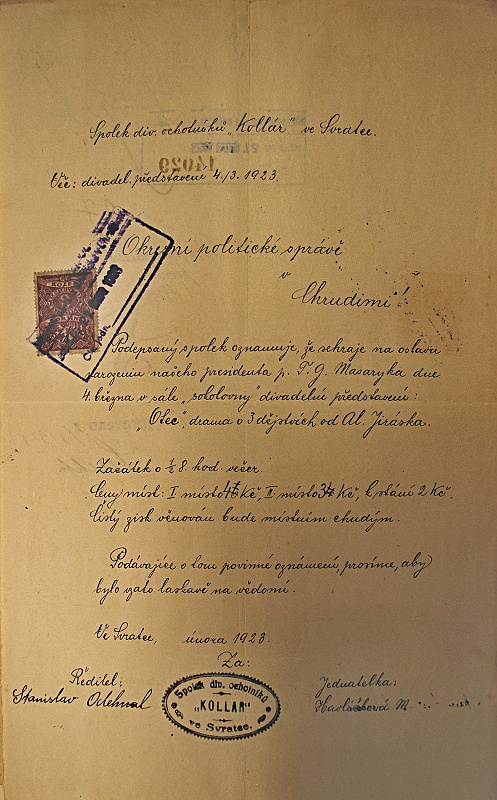 Spolek div. ochotníků „Kollár" ve Svratce.
14029
Věc: divadel. představení 4./3. 1923.
Okresní politické správě
v
Chrudimi!
Podepsaný spolek oznamuje, že sehraje na oslavu
narozenin našeho presidenta p. T. G. Masaryka dne
4. března v sále „sokolovny" divadelní představení:
„Otec", drama o 3 dějstvích od Al. Jiráska.
Začátek o ½ 8. hod. večer.
Ceny míst: I místo Kč, II místo Kč, k stání 2 Kč.
Čistý zisk věnován bude místním chudým.
Podávajíce o tom povinné oznámení, prosíme, aby
bylo vzato laskavě na vědomí.
Ve Svratce, února 1923.
Za:
Ředitel:
Stanislav Odehnal
Spolek div. ochotníků
„KOLLAR"
ve Svratce.
Jednatelka:
Havlíčková M.